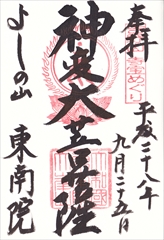 奉拝
平成二十八年
九月二十五日
神変大菩薩
よしの山
東南院